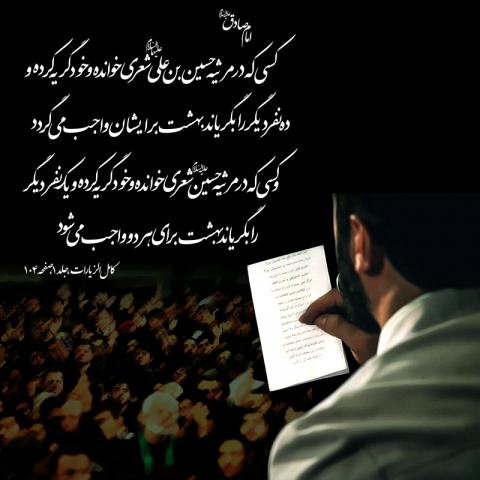 امام صادق علیه السلام
کسی که در مرثیه حسین بن علی علیه السلام شعری خوانده و خود گریه کرده و
ده نفر دیگر را بگریاند بهشت برایشان واجب می گردد
و کسی که در مرثیه حسین علیه السلام شعری خوانده و خود گریه کرده و یک نفر دیگر
را بگریاند بهشت برای هر دو واجب می شود
کامل الزیارات، جلد ۱، صفحه ۱۰۴